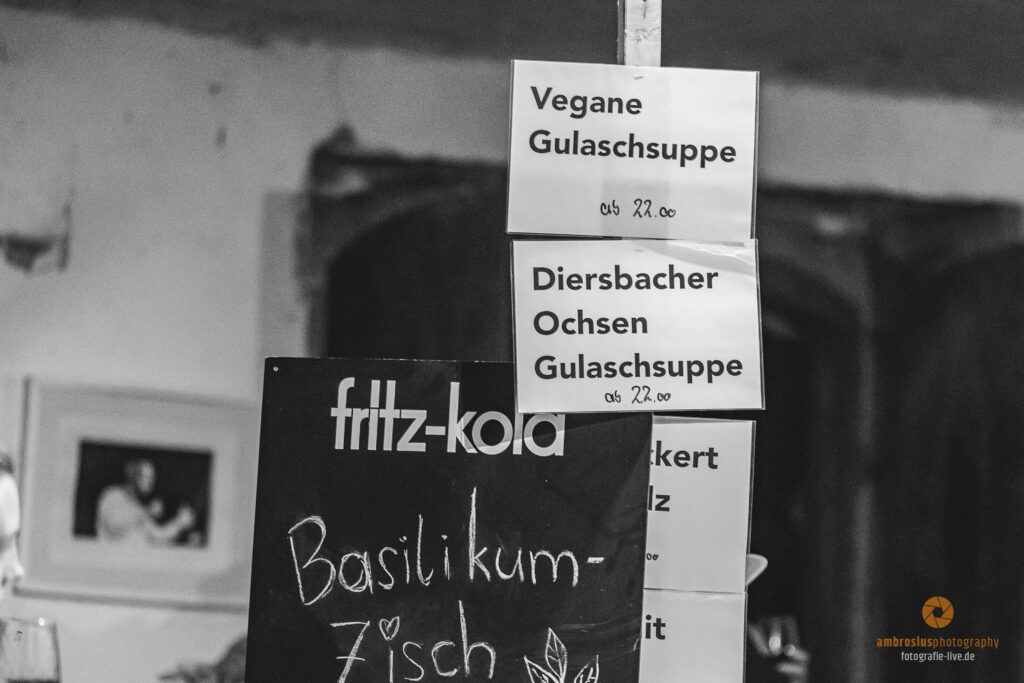 Vegane
Gulaschsuppe
ab 22.00
Diersbacher
Ochsen
Gulaschsuppe
ab 22.00
fritz-kola
Basilikum-
Zisch
ckert
lz
it
ambrosiusphotography
fotografie-live.de